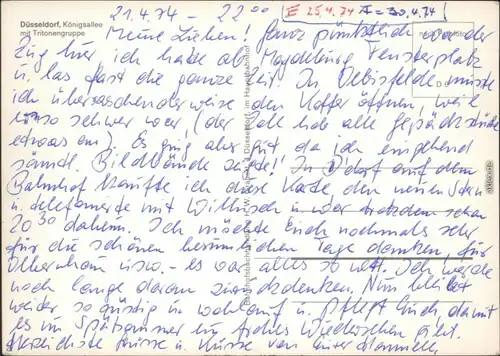 Düsseldorf, Königsallee
mit Tritonengruppe
21.4.74 – 22 00
E 25.4.74 = 30.4.74
Meine Lieben! Ganz pünktlich war der
Zug hier ich hatte ab Magdeburg Fensterplatz
u. las fast die ganze Zeit. In Oebisfelde musste
ich überraschenderweise den Koffer öffnen, weil
so schwer war, (der Zoll hob alle Gepäckstücke
etwas an) Es ging aber gut da ich eingehend
sämtl. Bildbände zeigte! In D'dorf auf dem
Bahnhof kaufte ich diese Karte den neuen Stern
u. telefonierte mit u. war trotzdem schon
20 30 daheim. Ich möchte Euch nochmals sehr
für die schönen besinnlichen Tage danken, für
Olbernhau usw. – es war alles so nett. Ich werde
noch lange daran zurückdenken. Nun bleibt
weiter so günstig u. wohlauf u. pflegt Euch, damit
es im Spätsommer ein frohes Wiedersehen gibt.
Herzlichste Grüsse u. Küsse von Eurer Hannele